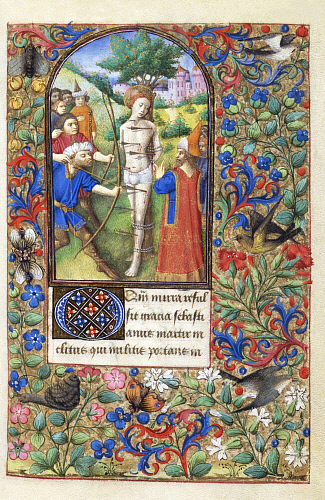 O Qm̄ mira reful
sit gracia sebasti
anus martir in
clitus qui militis portans in